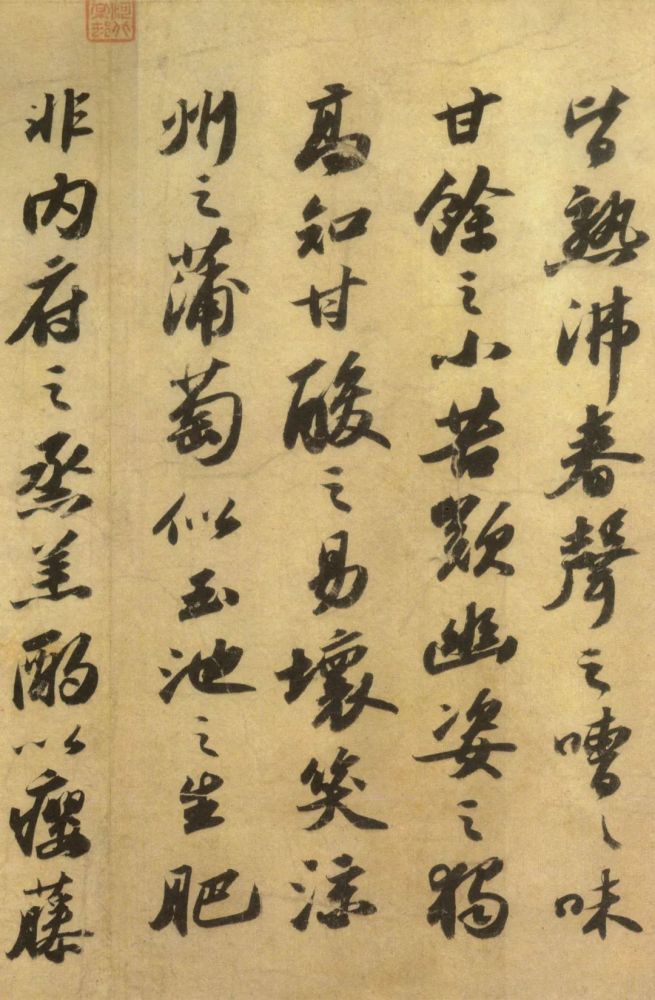 皆熟沸春聲之嘈〻味
甘餘之小苦歎幽姿之獨
高知甘酸之易壞笑涼
州之蒲萄似玉池之生肥
非內府之烝羔酌以癭藤